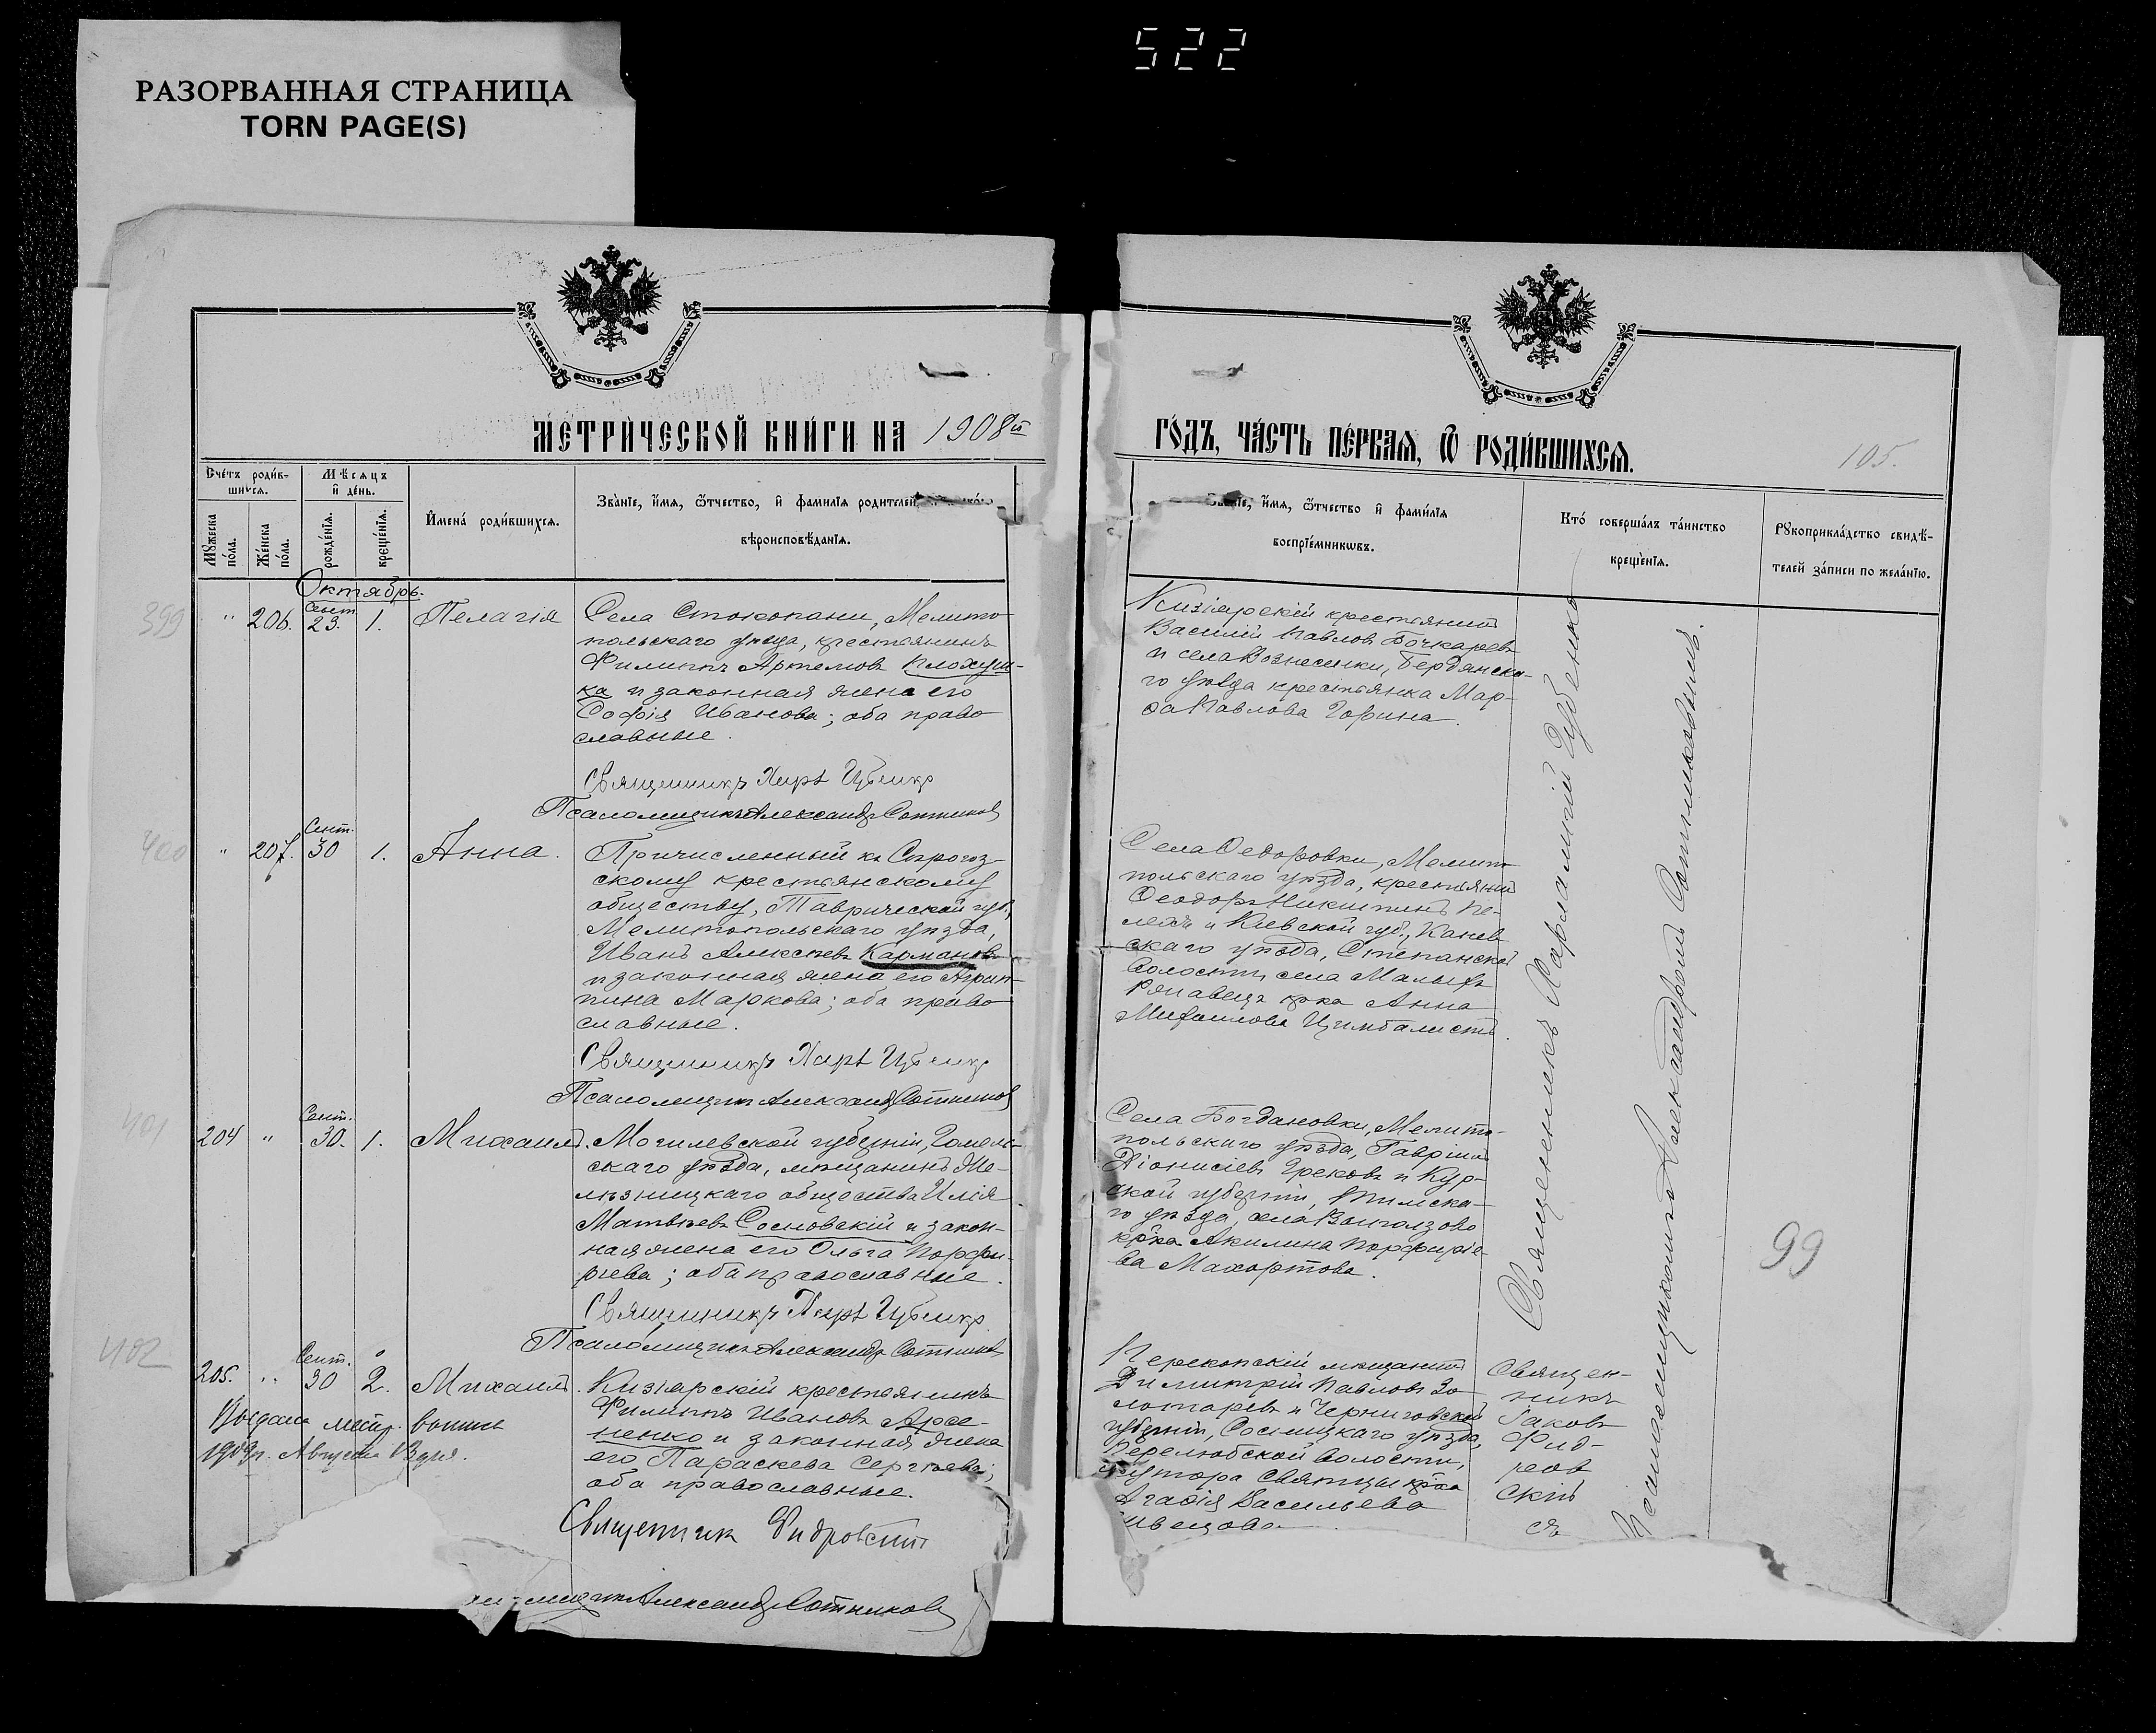 522
РАЗОРВАННАЯ СТРАНИЦА
TORN PAGE(S)
МЕТРИЧЕСКОЙ КНИГИ НА 1908й
ГОДЪ, ЧАСТЬ ПЕРВАЯ, Ѿ РОДИВШИХСЯ.
105.
Счетъ родив-
шихся.
Мѣсяцъ
и день.
Мужеска
пола.
Женска
пола.
рожденія.
крещенія.
Имена родившихся.
Званіе, имя, ѿтчество, и фамилія родителей,
вѣроисповѣданія.
Званіе, имя, ѿтчество и фамилія
воспріемниковъ.
Кто совершалъ таинство
крещенія.
Рукоприкладство свидѣ-
телей записи по желанію.
Октябрь.
399
" 206. Сент. 23. 1. Пелагія
Села Стокопани, Мелито-
польскаго уѣзда, крестьянинъ
Филиппъ Артемовъ Плохуш-
ка и законная жена его
Софія Иванова; оба право
славные.
Священникъ Харл Губенко
Псаломщикъ Александръ Сотниковъ
Кизіярскій крестьянинъ
Василій Павловъ Бочкаревъ
и села Вознесенки, Бердянска-
го уѣзда крестьянка Мар-
ѳа Павлова Горина.
400
" 207. Сент. 30 1. Анна.
Причисленный къ Сѣрогоз-
скому крестьянскому
обществу, Таврической губ.,
Мелитопольскаго уѣзда,
Иванъ Алексѣевъ Кармановъ
и законная жена его Агрип-
пина Маркова; оба право
славные.
Священникъ Харл Губенко
Псаломщикъ Александръ Сотниковъ
Села Ѳедоровки, Мелито
польскаго уѣзда, крестьянинъ
Ѳеодоръ Никитинъ Пе-
и Кіевской губ., Канев
скаго уѣзда, Степанской
волости, села Малыхъ
кр-ка Анна
Михайлова Цимбалистъ.
401
204 " Сент. 30. 1. Михаилъ.
Могилевской губерніи, Гомель-
скаго уѣзда, мѣщанинъ
общества Илія
Матвѣевъ Сосновскій и закон-
ная жена его Ольга Порфи-
рьева; оба православные.
Священникъ Харл Губенко
Псаломщикъ Александръ Сотниковъ
Села Богдановки, Мелито-
польскаго уѣзда, Гавріилъ
Діонисіевъ Грековъ и Кур-
ской губерніи, Тимска-
го уѣзда, села
кр-ка Акилина Порфиріе-
ва Махортова.
99
402
205. " Сент. 30 2. Михаилъ.
Кизіярскій крестьянинъ
Филиппъ Ивановъ Арсе-
ненко и законная жена
его Параскева Сергѣева;
оба православные.
Выдана метр. выпись
1909 г. Августа
Священникъ Фидровскій
Александръ Сотниковъ
Перекопскій мѣщанинъ
Димитрій Павловъ Зо-
лотаревъ и Черниговской
губерніи, Сосницкаго уѣзда,
волости,
хутора кр-ка
Агафія Васильева
Священ-
никъ
Іаковъ
Фид-
ров
скій
съ
Священникъ Харлампій Губенко
Псаломщикомъ Александромъ Сотниковымъ.